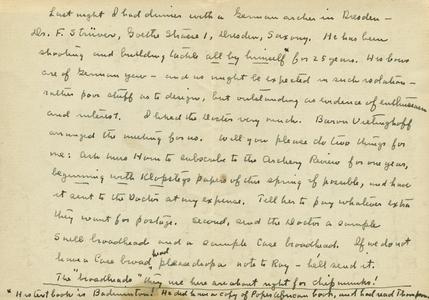 Last night I had dinner with a German archer in Dresden —
Dr. F. Strüvers, Goethe Strasse 1, Dresden, Saxony. He has been
shooting and building tackle all by himself* for 25 years. His bows
are of German yew — and as might be expected in such isolation —
rather poor stuff as to design, but outstanding as evidence of enthusiasm
and interest. I liked the Doctor very much. Baron Vietinghoff
arranged the meeting for us. Will you please do two things for
me: Ask Miss Horn to subscribe to the Archery Review for one year,
beginning with Klopsteg's paper of this spring if possible, and have
it sent to the Doctor at my expense. Tell her to pay whatever extra
they want for postage. Second, send the Doctor a sample
Snell broadhead and a sample Case broadhead. If we do not
have a Case broadhead please drop a note to Ray — he'll send it.
The "broadheads" they use here are about right for chipmunks!
* His text book is Badminton! He did have a copy of Pope's African book, and had read Thompson